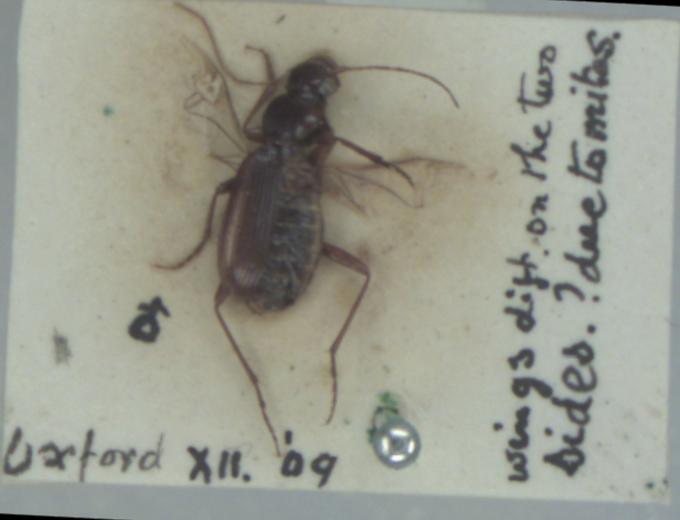 wings diff. on the two
sides. ? due to mites.
Oxford XII. '09